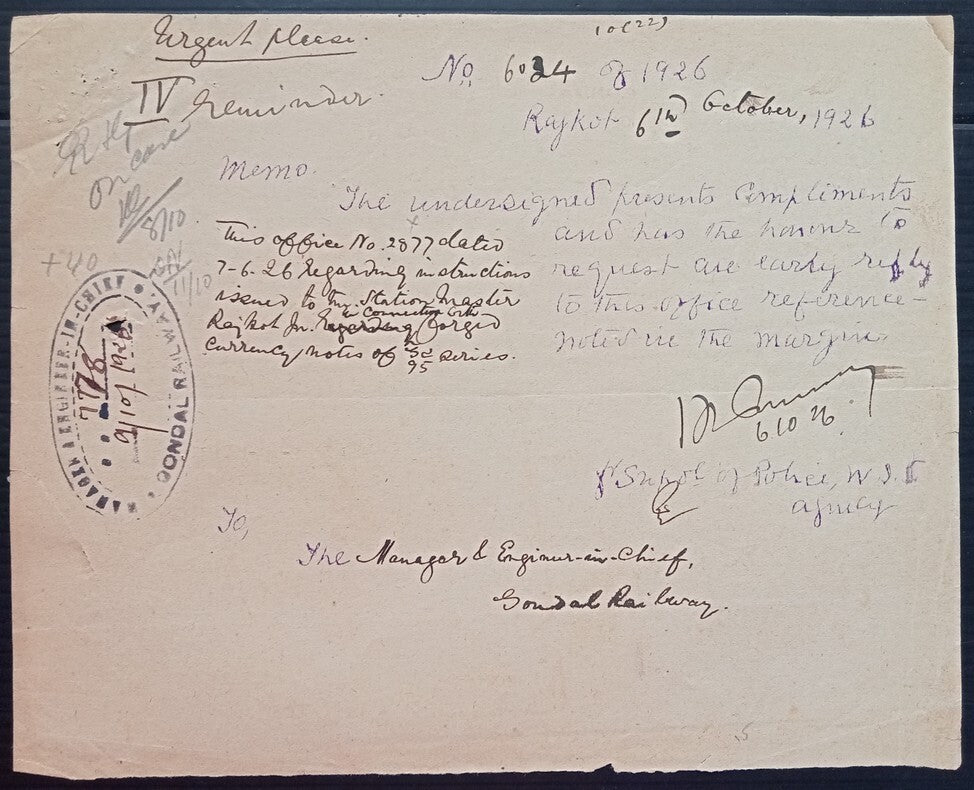 Urgent please.
10(22)
No. 6024 of 1926
IV Reminder.
Rajkot 6th October, 1926
on case
8/10
11/10
+40
Memo.
The undersigned presents compliments
and has the honour to
request an early reply
to this office reference
noted in the margin.
This office No. 2877 dated
7-6-26 Regarding instructions
issued to the Station Master
Rajkot Jn. in connection with forged
currency notes of series.
95
MANAGER & ENGINEER-IN-CHIEF
GONDAL RAILWAY
7778
9/10/1926
6 10 26.
fr Supdt of Police, W. I. S.
Agency
To,
The Manager & Engineer-in-Chief,
Gondal Railway.